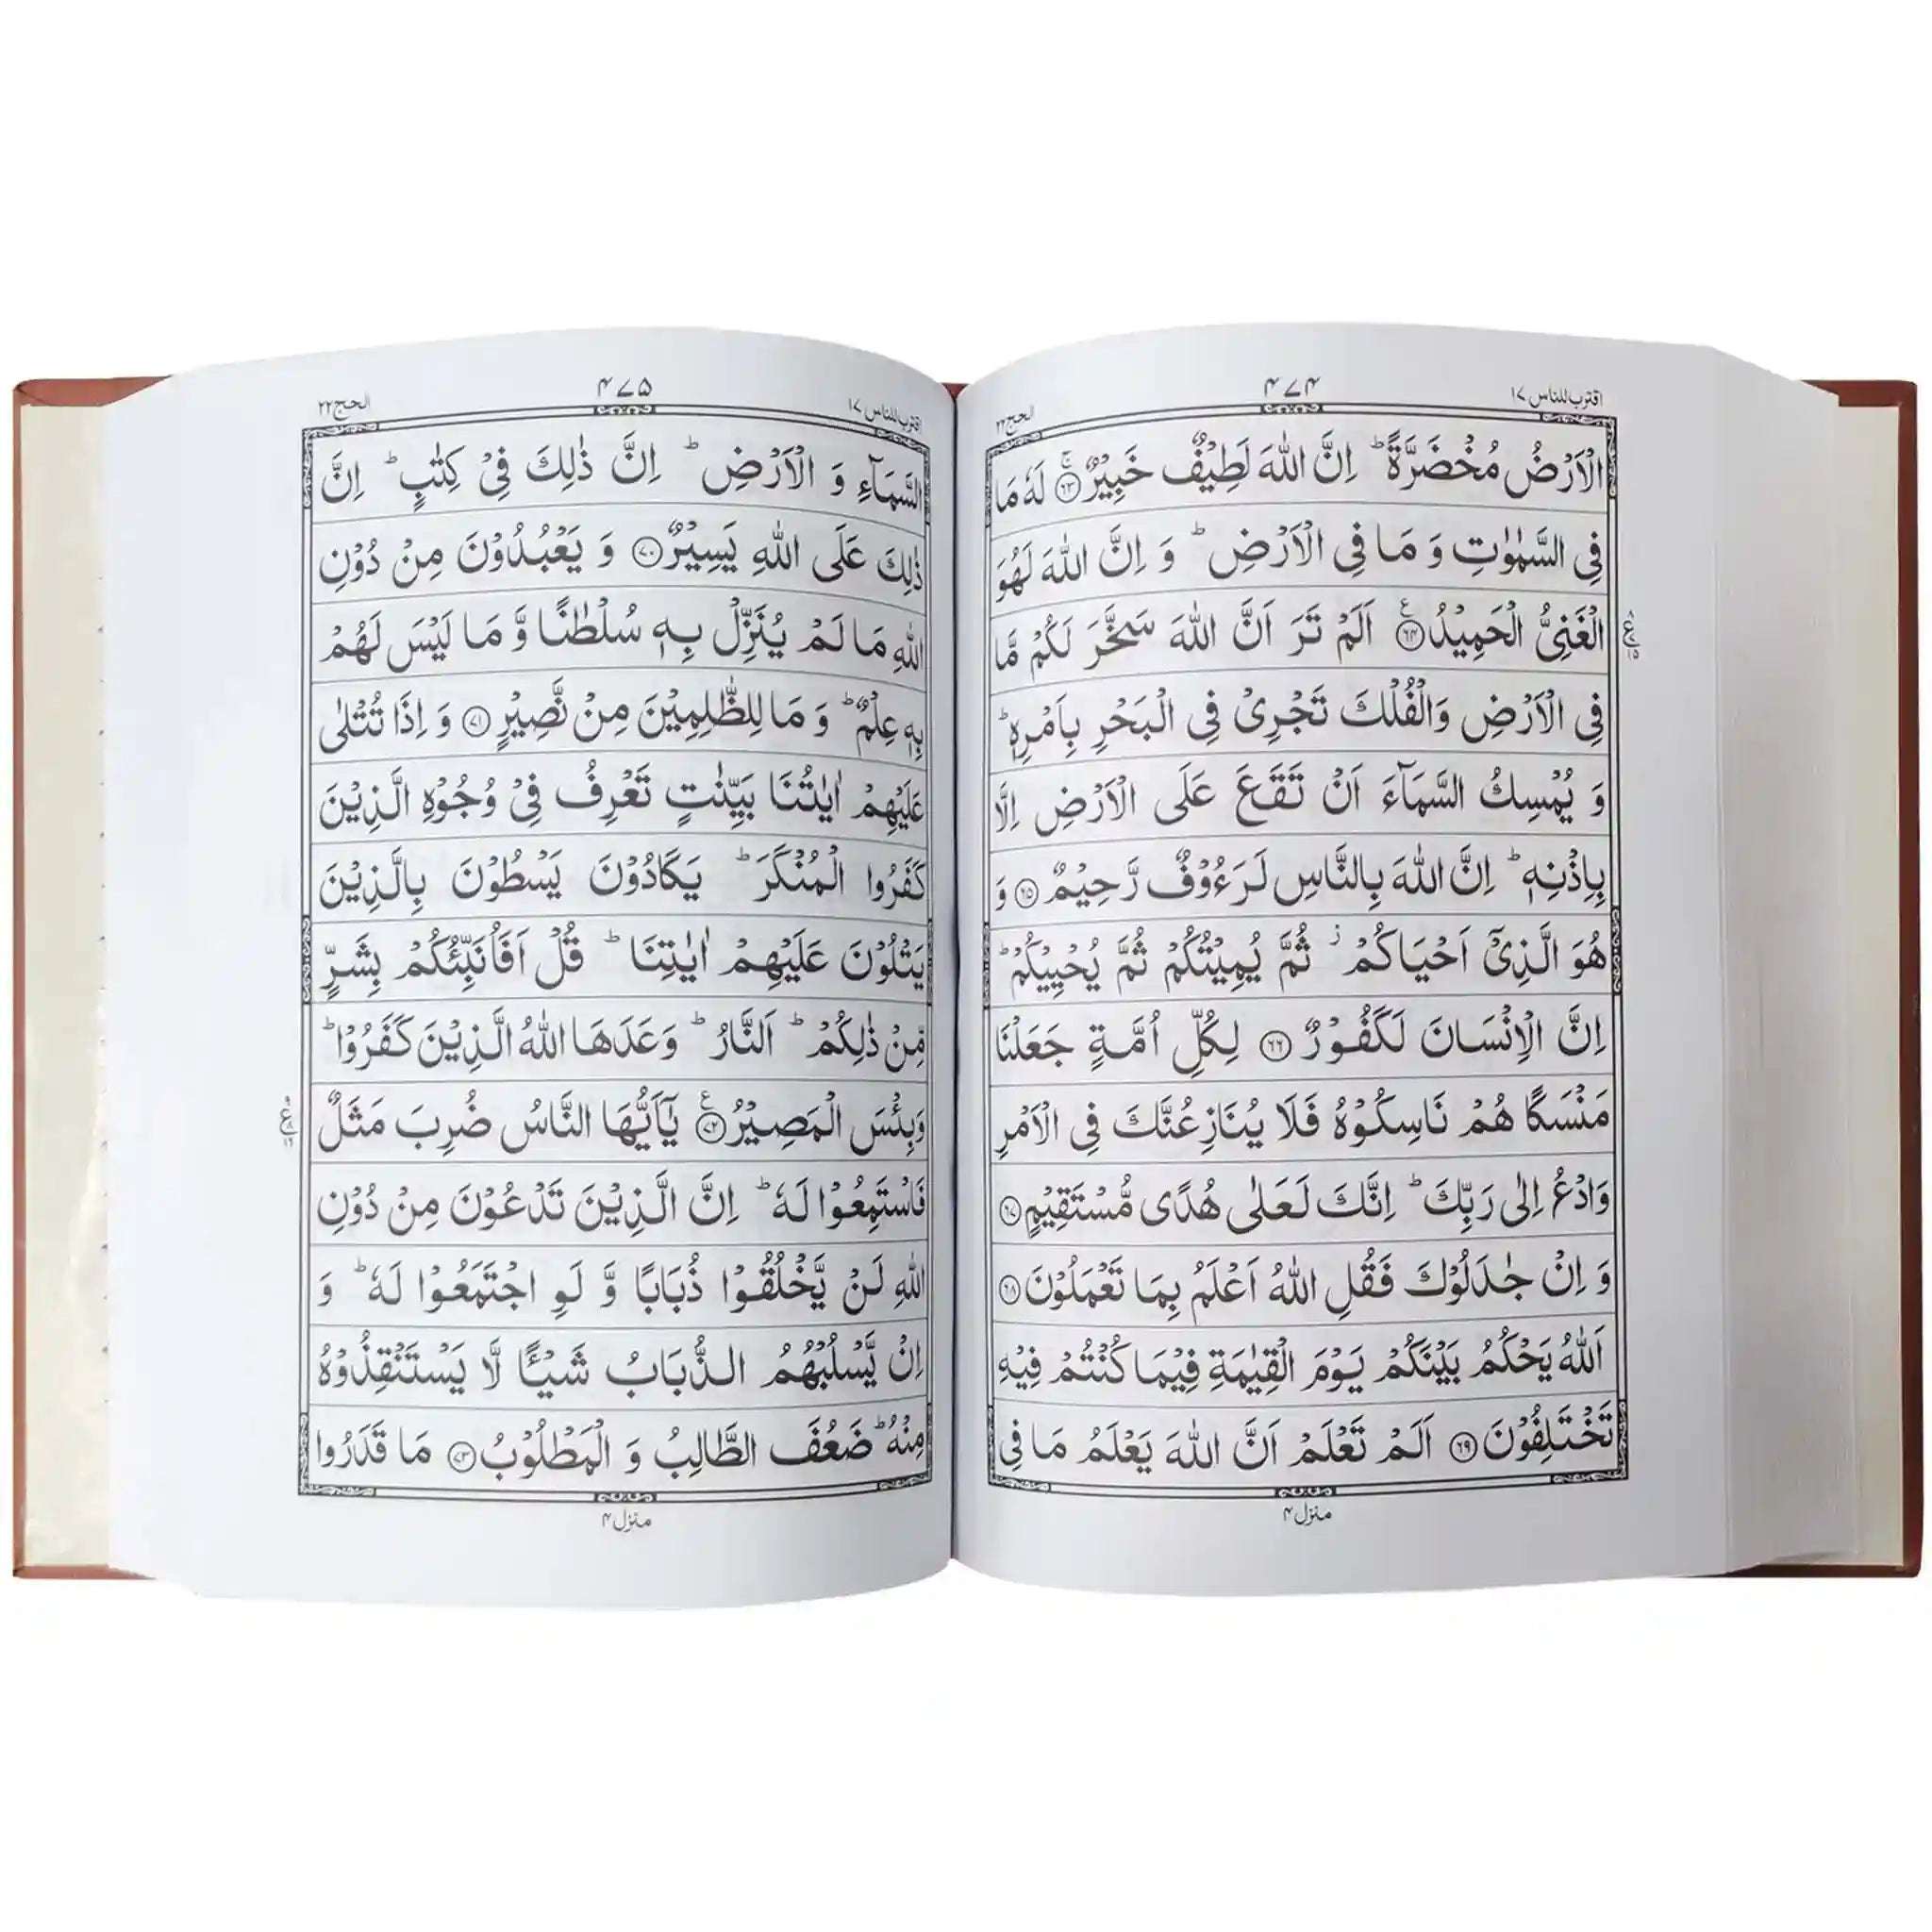 اقترب للناس ۱۷
۴۷۴
الحج ۲۲
الۡاَرۡضُ مُخۡضَرَّةً ؕ اِنَّ اللّٰهَ لَطِيۡفٌ خَبِيۡرٌ ۚ‏ ﴿۶۳﴾ لَهٗ مَا
فِى السَّمٰوٰتِ وَ مَا فِى الۡاَرۡضِ ؕ وَ اِنَّ اللّٰهَ لَهُوَ
الۡغَنِىُّ الۡحَمِيۡدُ ﴿۶۴﴾ اَلَمۡ تَرَ اَنَّ اللّٰهَ سَخَّرَ لَكُمۡ مَّا
فِى الۡاَرۡضِ وَالۡفُلۡكَ تَجۡرِىۡ فِى الۡبَحۡرِ بِاَمۡرِهٖ ؕ
وَ يُمۡسِكُ السَّمَآءَ اَنۡ تَقَعَ عَلَى الۡاَرۡضِ اِلَّا
بِاِذۡنِهٖ ؕ اِنَّ اللّٰهَ بِالنَّاسِ لَرَءُوۡفٌ رَّحِيۡمٌ ﴿۶۵﴾ وَ
هُوَ الَّذِىۡۤ اَحۡيَاكُمۡ ز ثُمَّ يُمِيۡتُكُمۡ ثُمَّ يُحۡيِيۡكُمۡ ؕ
اِنَّ الۡاِنۡسَانَ لَـكَفُوۡرٌ ﴿۶۶﴾ لِكُلِّ اُمَّةٍ جَعَلۡنَا
مَنۡسَكًا هُمۡ نَاسِكُوۡهُ فَلَا يُنَازِعُنَّكَ فِى الۡاَمۡرِ
وَادۡعُ اِلٰى رَبِّكَ ؕ اِنَّكَ لَعَلٰى هُدًى مُّسۡتَقِيۡمٍ ﴿۶۷﴾
وَ اِنۡ جٰدَلُوۡكَ فَقُلِ اللّٰهُ اَعۡلَمُ بِمَا تَعۡمَلُوۡنَ ﴿۶۸﴾
اَللّٰهُ يَحۡكُمُ بَيۡنَكُمۡ يَوۡمَ الۡقِيٰمَةِ فِيۡمَا كُنۡتُمۡ فِيۡهِ
تَخۡتَلِفُوۡنَ ﴿۶۹﴾ اَلَمۡ تَعۡلَمۡ اَنَّ اللّٰهَ يَعۡلَمُ مَا فِى
منزل ۴
اقترب للناس ۱۷
۴۷۵
الحج ۲۲
السَّمَآءِ وَ الۡاَرۡضِ ؕ اِنَّ ذٰلِكَ فِىۡ كِتٰبٍ ؕ اِنَّ
ذٰلِكَ عَلَى اللّٰهِ يَسِيۡرٌ ﴿۷۰﴾ وَ يَعۡبُدُوۡنَ مِنۡ دُوۡنِ
اللّٰهِ مَا لَمۡ يُنَزِّلۡ بِهٖ سُلۡطٰنًا وَّ مَا لَيۡسَ لَهُمۡ
بِهٖ عِلۡمٌ ؕ وَ مَا لِلظّٰلِمِيۡنَ مِنۡ نَّصِيۡرٍ ﴿۷۱﴾ وَ اِذَا تُتۡلٰى
عَلَيۡهِمۡ اٰيٰتُنَا بَيِّنٰتٍ تَعۡرِفُ فِىۡ وُجُوۡهِ الَّذِيۡنَ
كَفَرُوا الۡمُنۡكَرَ ؕ يَكَادُوۡنَ يَسۡطُوۡنَ بِالَّذِيۡنَ
يَتۡلُوۡنَ عَلَيۡهِمۡ اٰيٰتِنَا ؕ قُلۡ اَفَاُنَبِّئُكُمۡ بِشَرٍّ
مِّنۡ ذٰلِكُمۡ ؕ اَلنَّارُ ؕ وَعَدَهَا اللّٰهُ الَّذِيۡنَ كَفَرُوۡا ؕ
وَبِئۡسَ الۡمَصِيۡرُ ﴿۷۲﴾ يٰۤاَيُّهَا النَّاسُ ضُرِبَ مَثَلٌ
فَاسۡتَمِعُوۡا لَهٗ ؕ اِنَّ الَّذِيۡنَ تَدۡعُوۡنَ مِنۡ دُوۡنِ
اللّٰهِ لَنۡ يَّخۡلُقُوۡا ذُبَابًا وَّ لَوِ اجۡتَمَعُوۡا لَهٗ ؕ وَ
اِنۡ يَّسۡلُبۡهُمُ الذُّبَابُ شَيۡـًٔا لَّا يَسۡتَنۡقِذُوۡهُ
مِنۡهُ ؕ ضَعُفَ الطَّالِبُ وَ الۡمَطۡلُوۡبُ ﴿۷۳﴾ مَا قَدَرُوا
منزل ۴